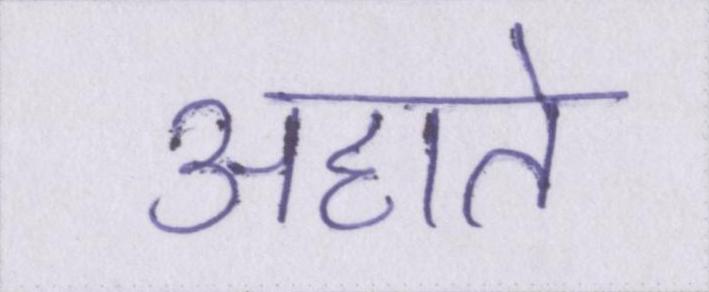 अहाते